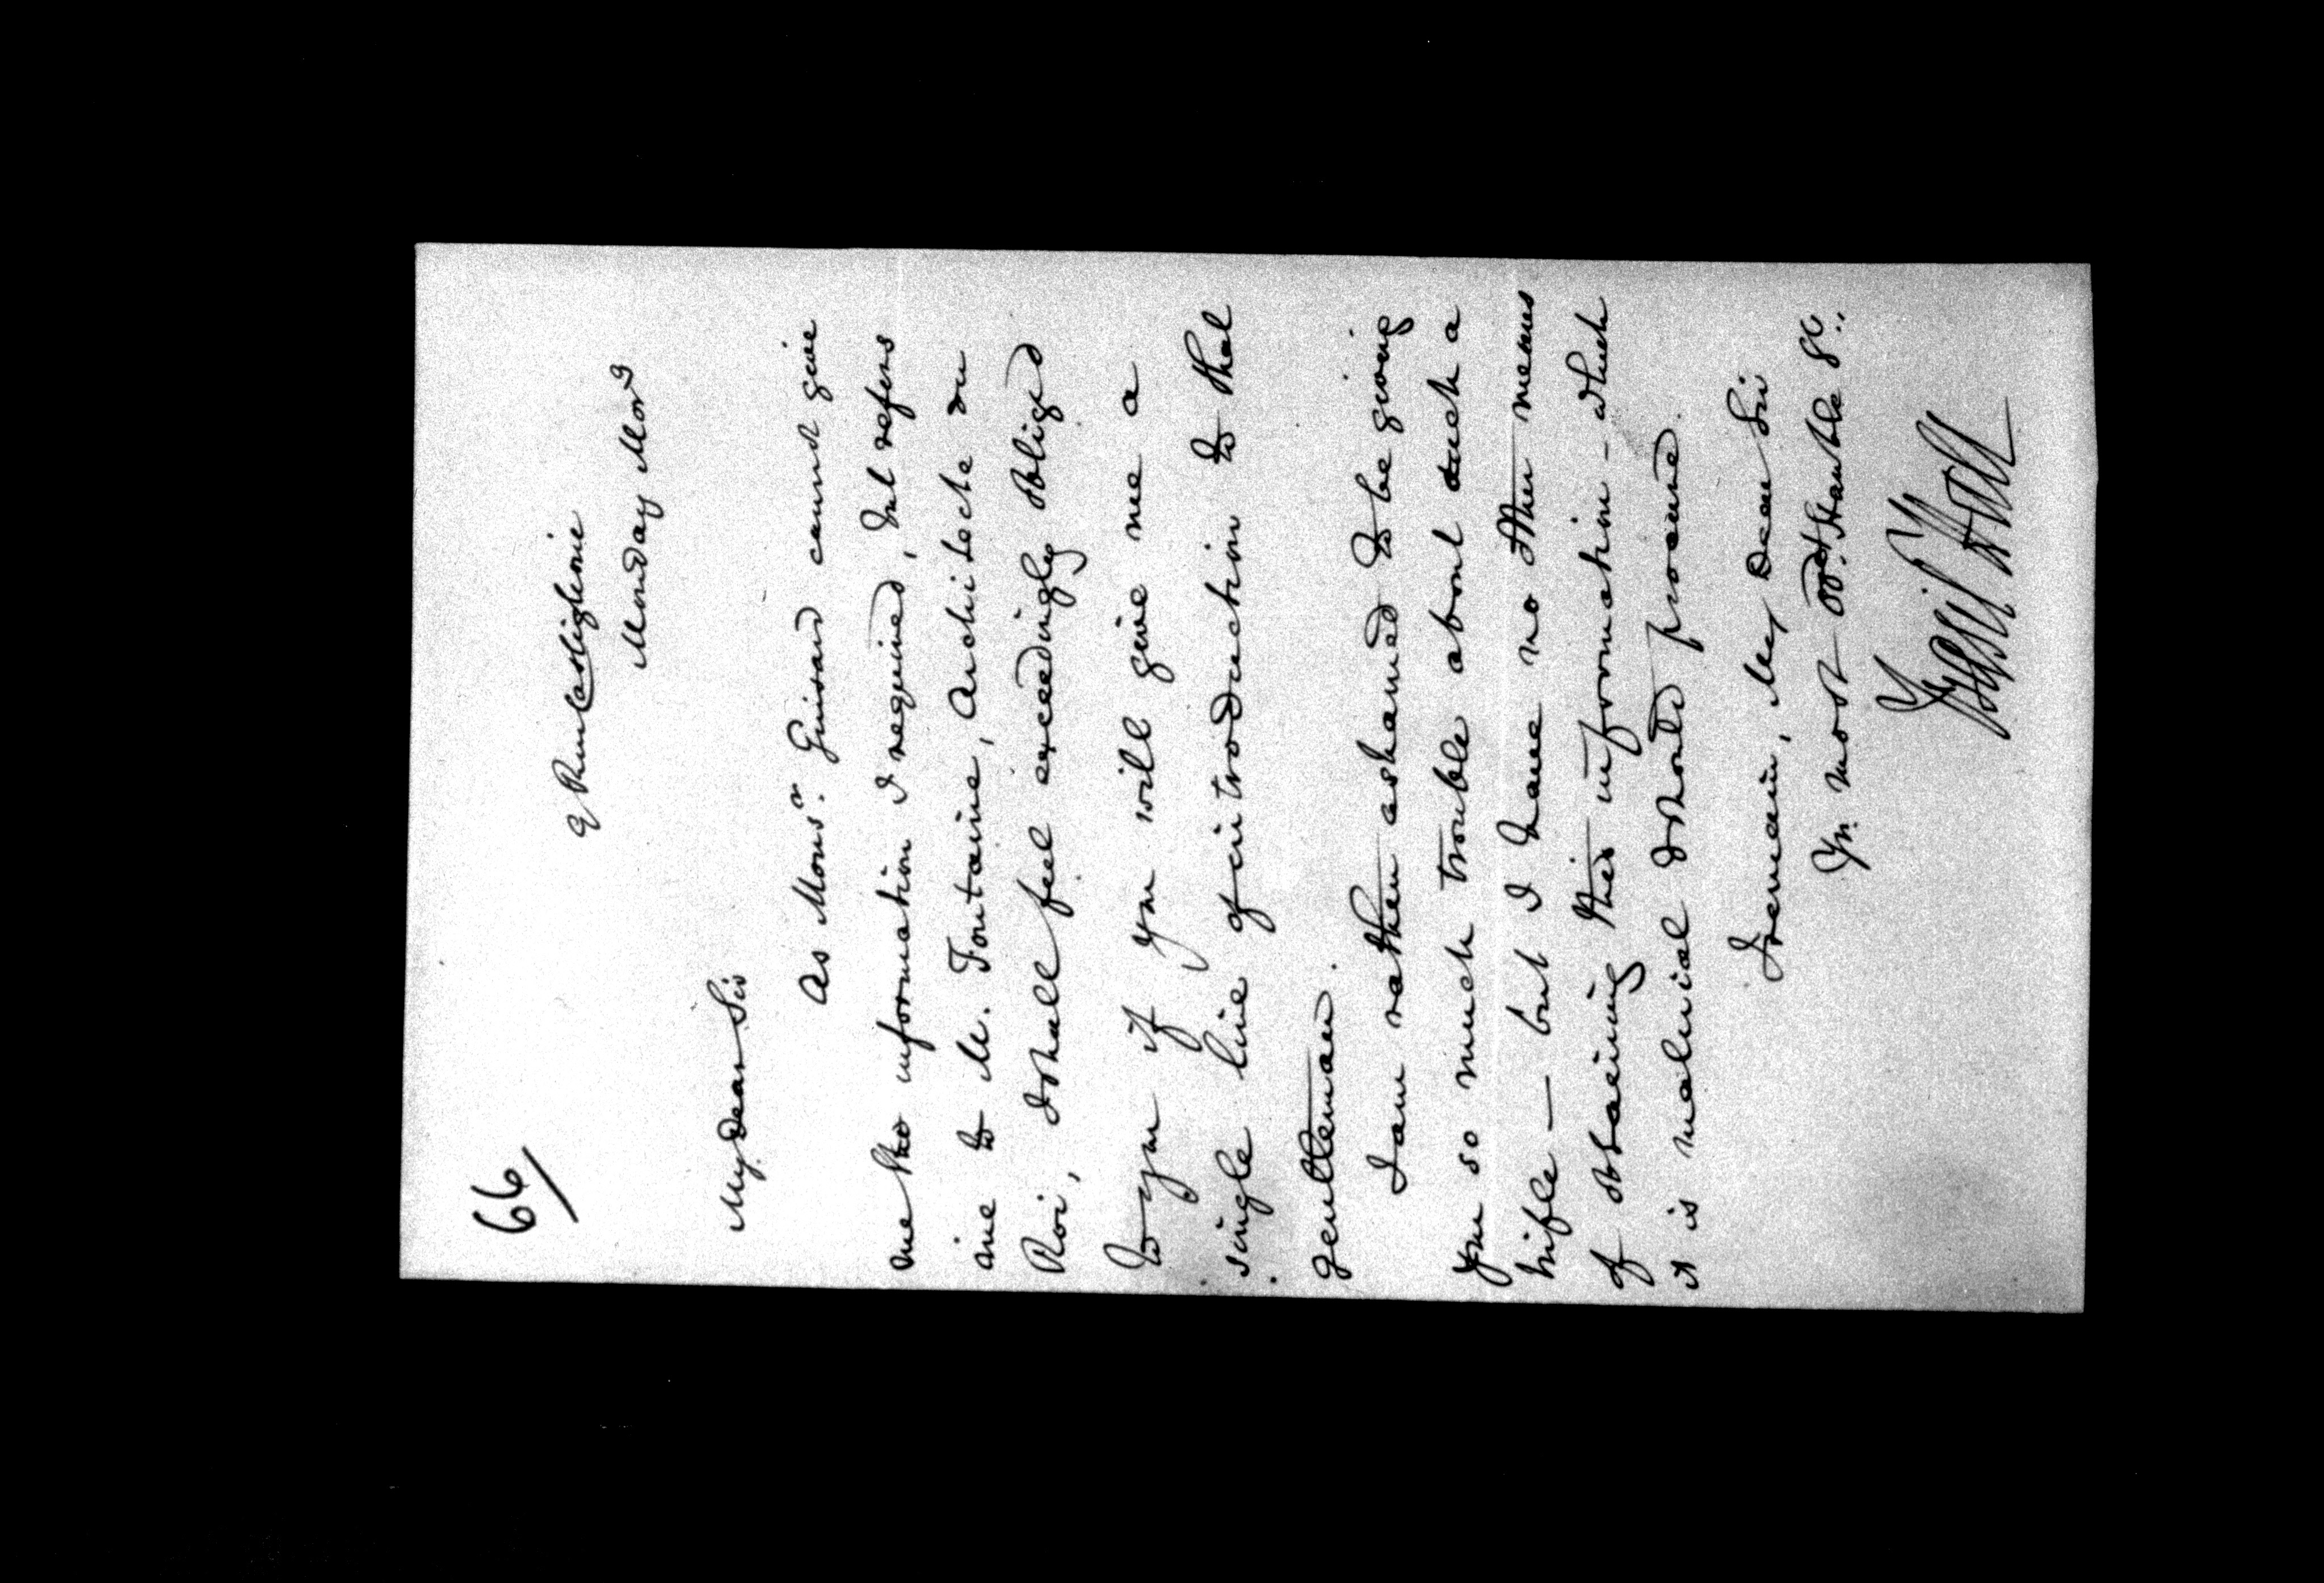 66/
9 Rue Castiglione
Monday Mor^g
My Dear Sir
As Mons^r. Guisard cannot give
me the information I required, but refers
me to M. Fontaine, Architecte du
Roi, I shall feel exceedingly obliged
to you if you will give me a
single line of introduction to that
gentleman.
I am rather ashamed to be giving
you so much trouble about such a
trifle — but I have no other means
of obtaining this information - which
it is material I should procure.
I remain, My Dear Sir
Yr. most Obt. Humble St.